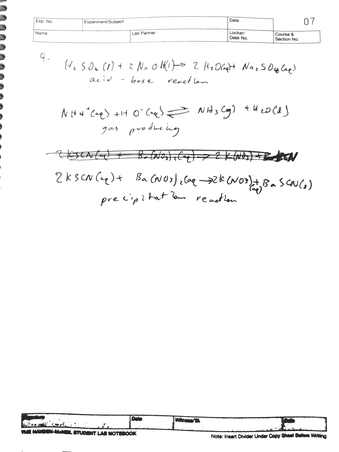 Exp. No. Experiment/Subject Date 07
Name Lab Partner Locker/Desk No. Course & Section No.
4.
H2SO4(l) + 2NaOH(l) → 2H2O(l) + Na2SO4(aq)
acid - base reaction
NH4+(aq) + HO-(aq) ⇌ NH3(g) + H2O(l)
gas producing
2KSCN(aq) + Ba(NO3)2(aq) → 2K(NO3)(aq) + BaSCN(s)
precipitation reaction
Signature Date Witness/TA Date
THE HAYDEN-McNEIL STUDENT LAB NOTEBOOK Note: Insert Divider Under Copy Sheet Before Writing